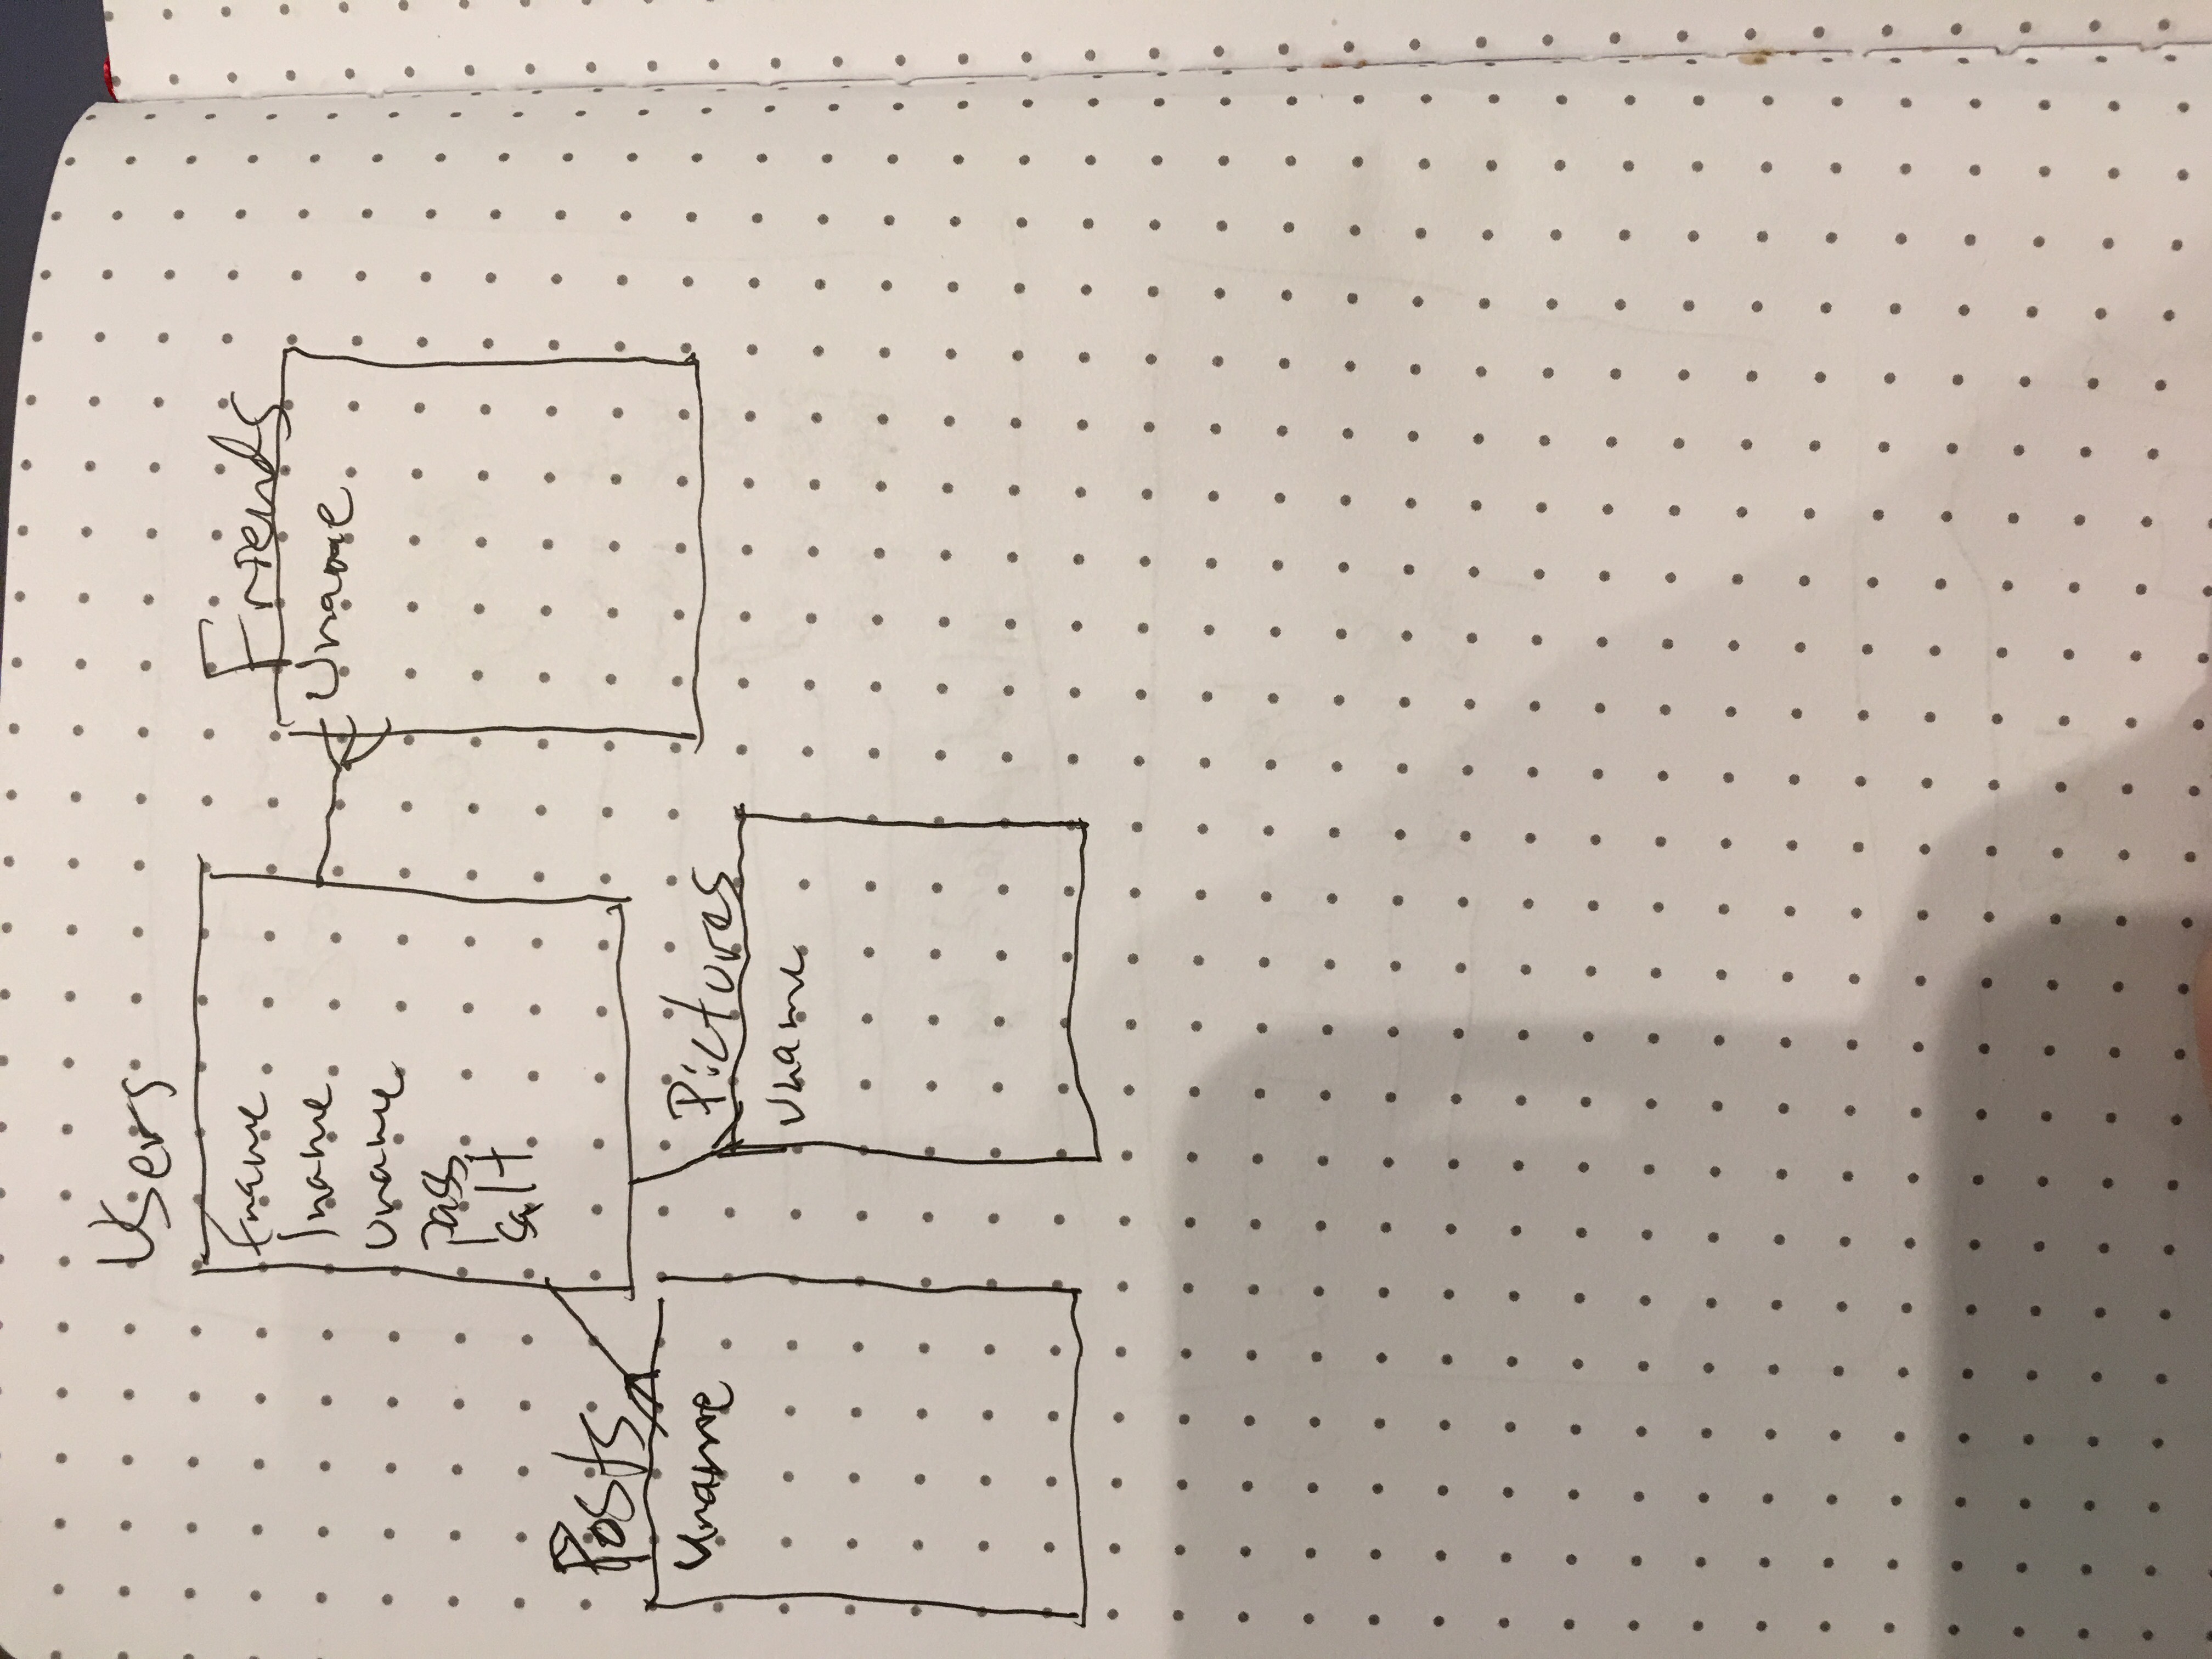 Users
fname
lname
uname
pass
salt
Friends
Uname
Posts
Uname
Pictures
Uname